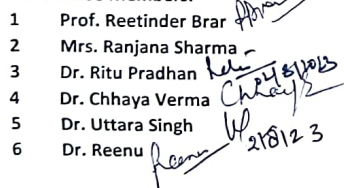 1 Prof. Reetinder Brar
2 Mrs. Ranjana Sharma
3 Dr. Ritu Pradhan
4 Dr. Chhaya Verma Chhaya
5 Dr. Uttara Singh 2/8/23
6 Dr. Reenu Reenu